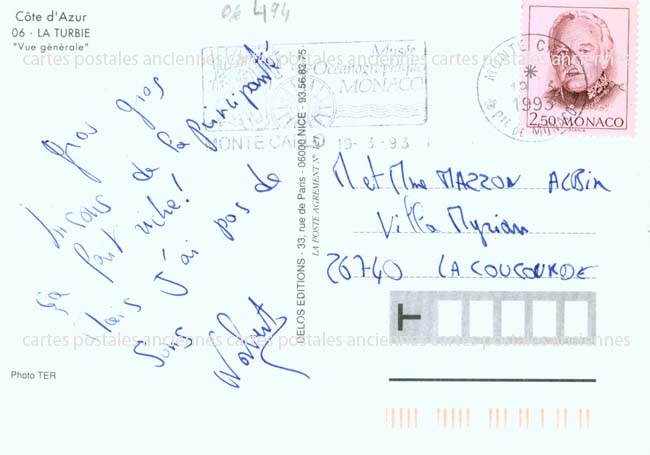 06 494
Côte d'Azur
06 - LA TURBIE
"Vue générale"
Musée
Océanographique
MONACO
MONTE CARLO 19-3-93
MONTE C
1993
PTÉ DE MONACO
2,50 MONACO
cartes postales anciennes cartes postales anciennes cartes postales anciennes
gros gros
bisous de la principauté
ça fait riche!
Mais J'ai pas de
Sous
Norbert
DELOS EDITIONS - 33, rue de Paris - 06000 NICE - 93.56.82.75
LA POSTE AGREMENT N°
M et Mme MAZZON ALBIN
Villa Myriam
26740 LA COUCOURDE
T
cartes postales anciennes cartes postales anciennes cartes postales anciennes
Photo TER